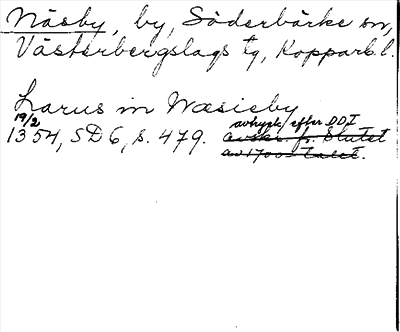 Näsby, by, Söderbärke sn,
Västerbergslags tg, Kopparb. l.
Larus in Næsieby
19/2
1354, SD 6, s. 479. avtryck efter DDI
avskr. fr. slutet
av 1700-talet.